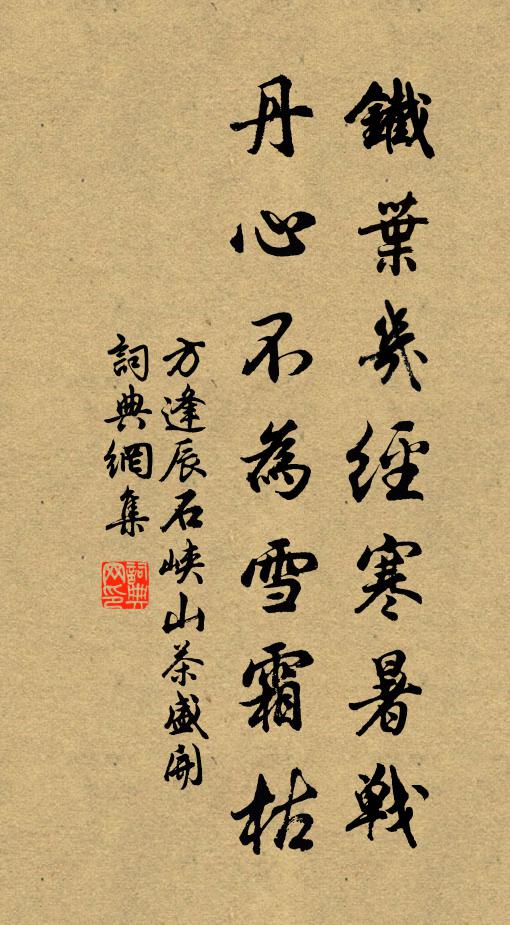 鐵葉幾經寒暑戰
丹心不為雪霜枯
方逢辰石峽山茶盛開
詞典網集
詞典網印